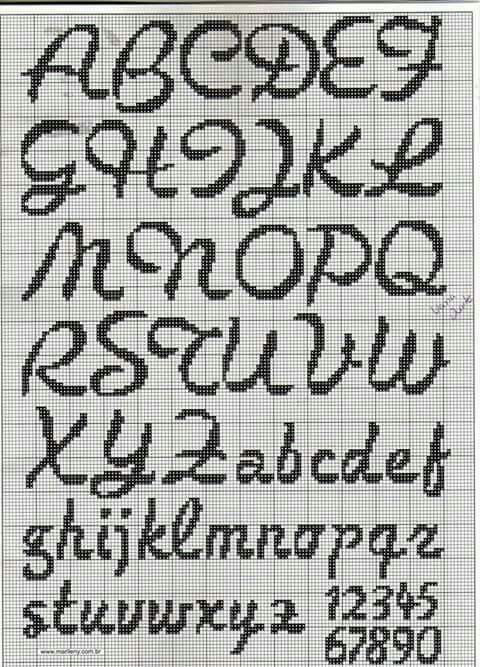 ABCDEF
GHIJKL
MNOPQ
RSTUVW
XYZabcdef
ghijklmnopqr
stuvwxyz 12345
67890
www.marileny.com.br